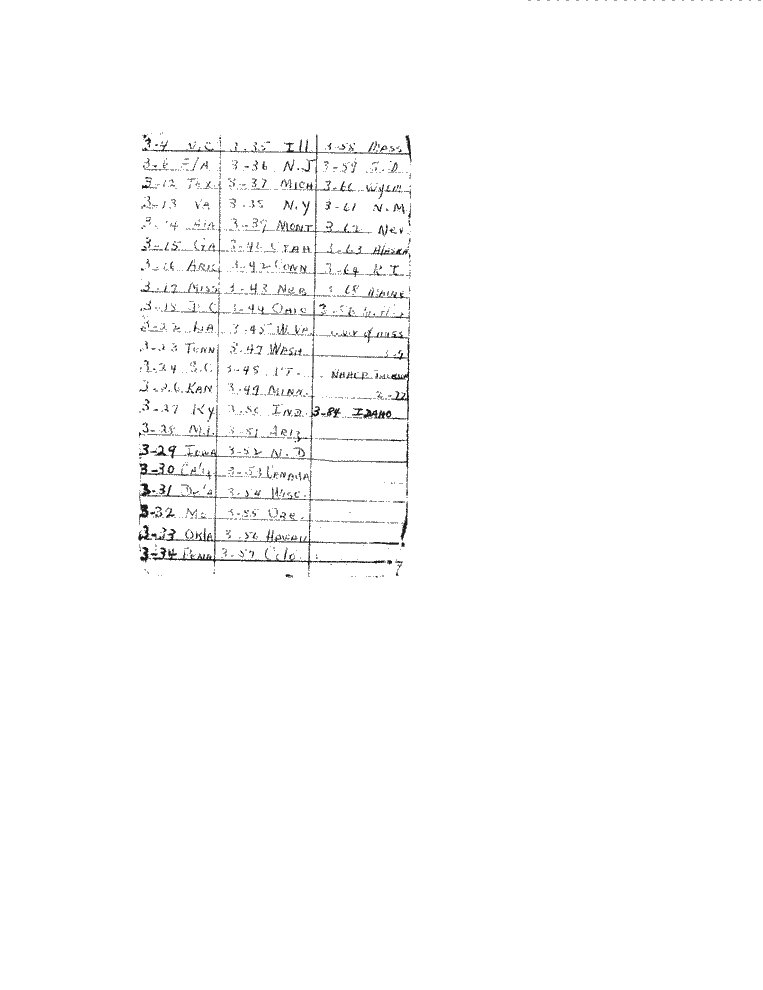 3-4 N.C 3-35 Ill 3-58 Mass
3-6 F/A 3-36 N.J 3-59 S.D
3-12 Tex. 3-37 MICH 3-60 Wyom
3-13 VA 3-38 N.Y 3-61 N.M
3-14 AlA 3-39 MONT 3-62 Nev.
3-15 GA 3-40 UTAH 3-63 AlASKA
3-16 ARK 3-42 CONN 3-64 R I.
3-17 MISS 3-43 NEB 3-68
3-18 D.C 3-44 OHIO 3-58
3-22 LA 3-45 W.VA. of miss
3-23 TENN 3-47 WASH 3-9
3-24 S.C. 3-48 VT. NAACP
3-26 KAN 3-49 MINN. 2-22
3-27 Ky 3-50 IND. 3-84 IDAHO
3-28 3-51 ARIZ
3-29 IOWA 3-52 N.D
3-30 3-53 CANADA
3-31 3-54 WISC.
3-32 3-55 ORE.
3-33 OKlA 3-56 HAWAII
3-34 PENN 3-57 Colo.
7